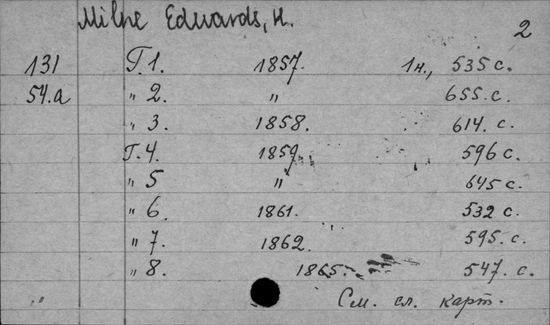 Milne Edwards, H.
2
131 Т.1. 1857. 1н., 535 с.
54.а „ 2. „ 655. с.
„ 3. 1858. 614. с.
Т.4. 1859. 596 с.
„ 5 „ 645 с.
„ 6. 1861. 532 с.
„ 7. 1862. 595. с.
„ 8. 1865. 547. с.
См. сл. карт.